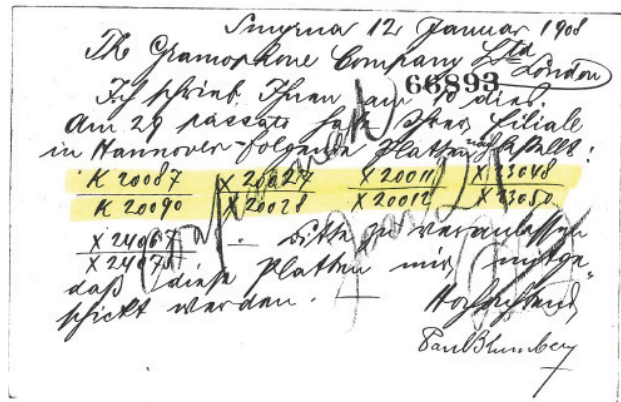 Smyrna 12 Januar 1908
The Gramophone Company Ltd
London
66893
Ich schrieb Ihnen am 10 dies.
Am 29 passato habe Ihrer Filiale
in Hannover folgende Platten nachbestellt:
K 20087 X 20027 X 20011 X 23048
K 20090 X 20028 X 20012 X 23050
X 24067 Bitte zu veranlassen
X 24075
daß diese Platten mir mitge-
schickt werden. — Hochachtend
Paul Blumberg